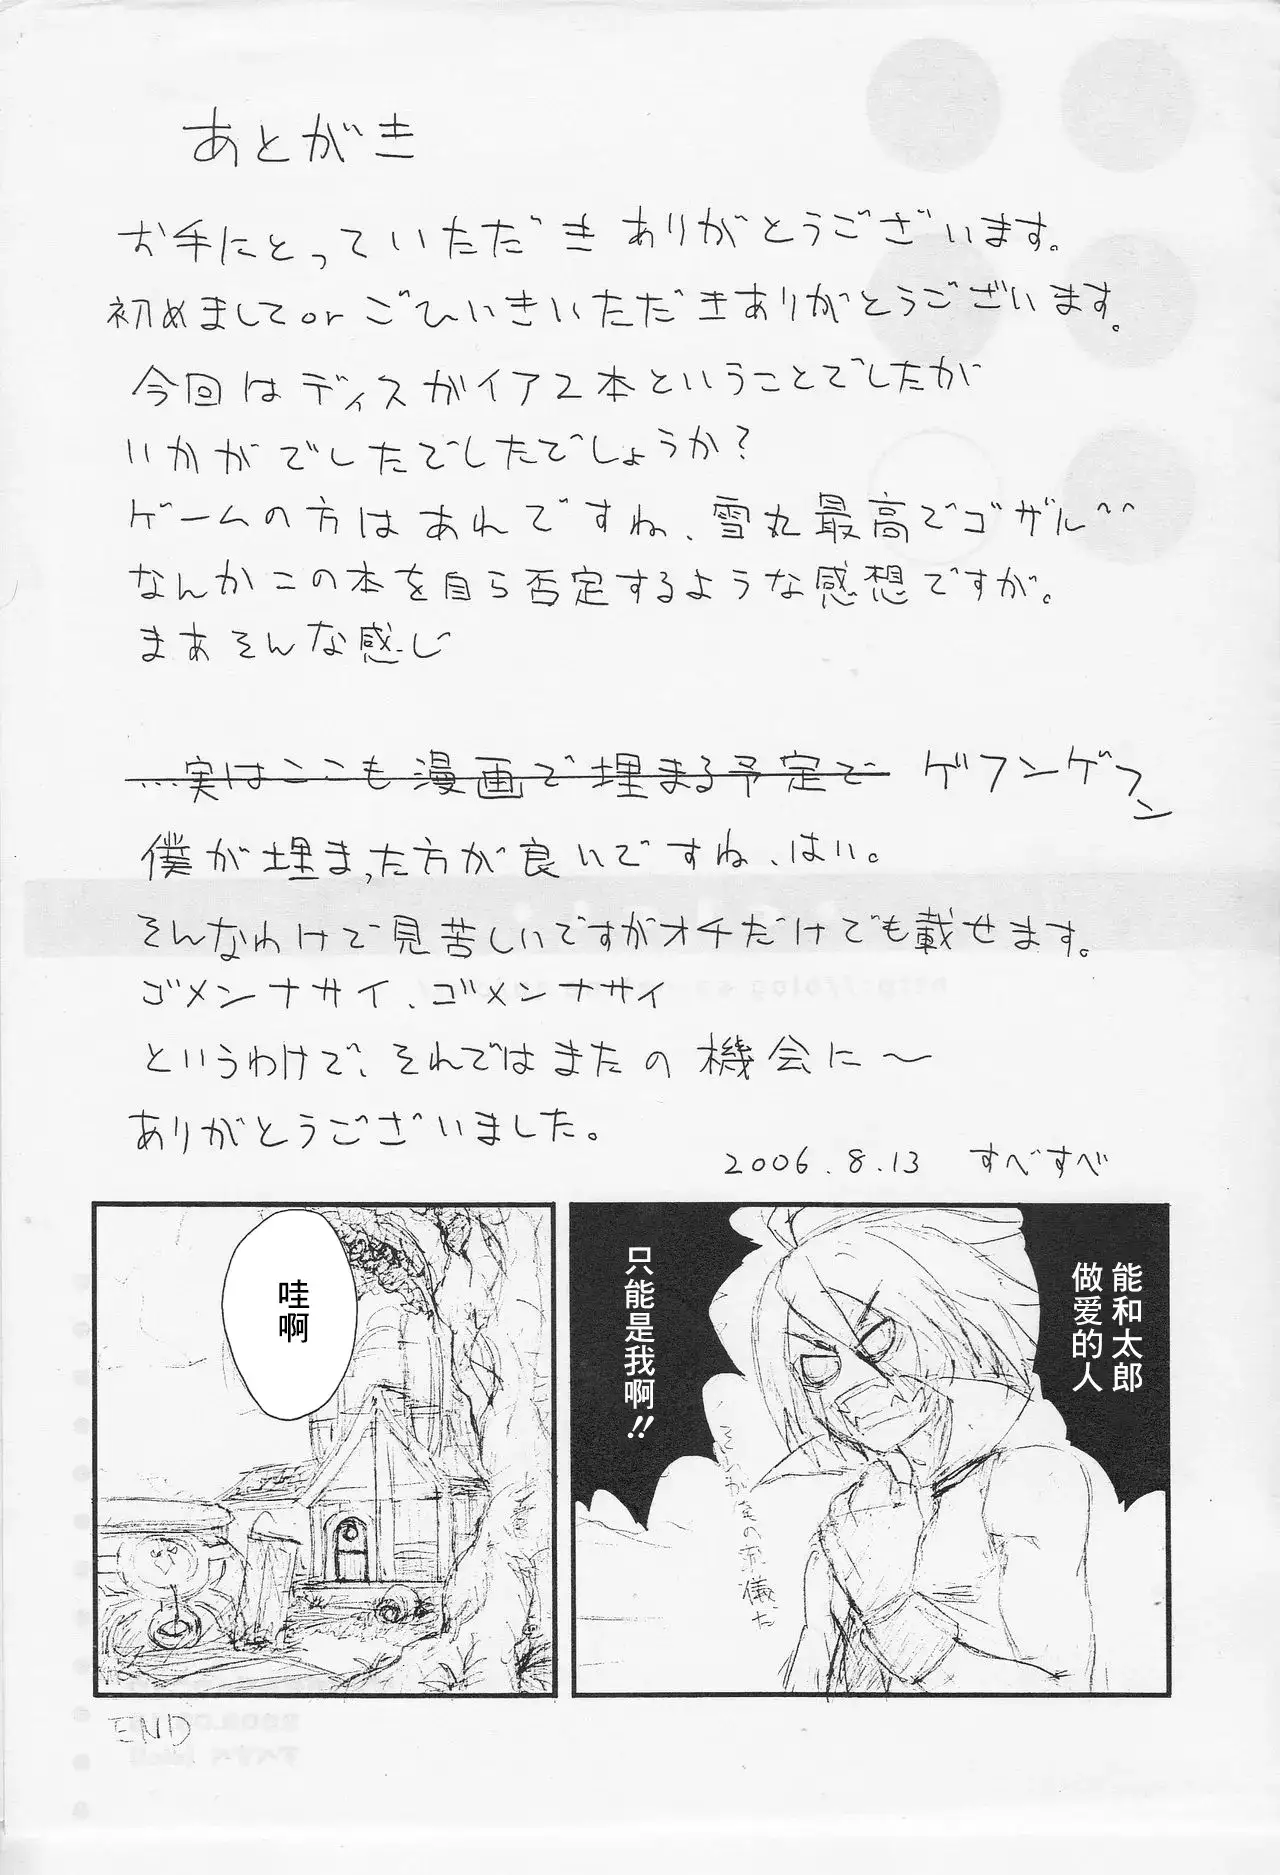 あとがき
お手にとっていただき ありがとうございます。
初めましてor ごひいきいただきありがとうございます。
今回はディスガイア2本ということでしたが
いかがでしたでしたでしょうか?
ゲームの方はあれですね、雪丸最高でゴザル^^
なんかこの本を自ら否定するような感想ですが。
まあそんな感じ
...実はここも漫画で埋まる予定で ゲフンゲフン
僕が埋まった方が良いですね、はい。
そんなわけで見苦しいですがオチだけでも載せます。
ゴメンナサイ、ゴメンナサイ
というわけで、それではまたの機会に〜
ありがとうございました。
2006.8.13 すべすべ
能和太郎
做爱的人
只能是我啊!!
哇啊
END